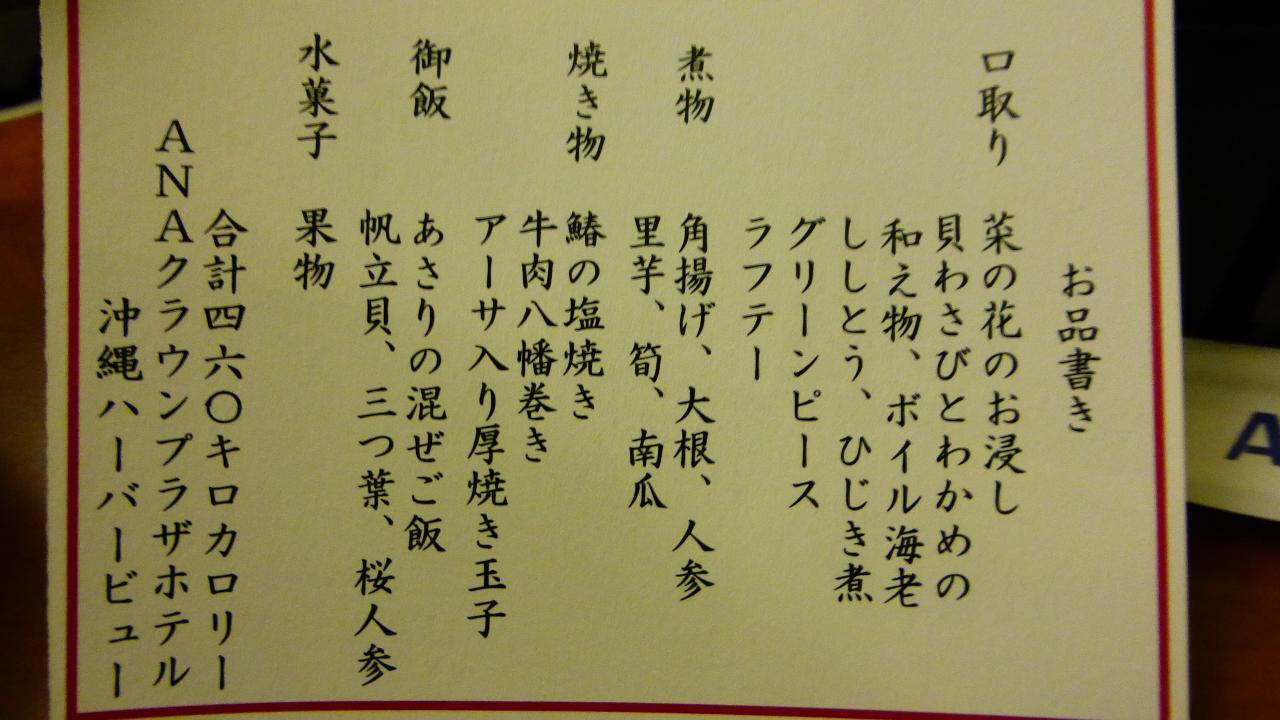 お品書き
口取り　菜の花のお浸し
貝わさびとわかめの
和え物、ボイル海老
ししとう、ひじき煮
グリーンピース
ラフテー
煮物　角揚げ、大根、人参
里芋、筍、南瓜
焼き物　鰆の塩焼き
牛肉八幡巻き
アーサ入り厚焼き玉子
御飯　あさりの混ぜご飯
帆立貝、三つ葉、桜人参
水菓子　果物
合計四六〇キロカロリー
ANAクラウンプラザホテル
沖縄ハーバービュー
A